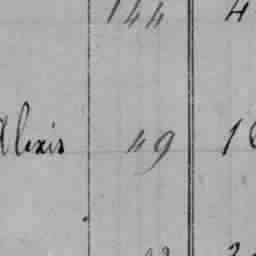 144 4
Alexis 49